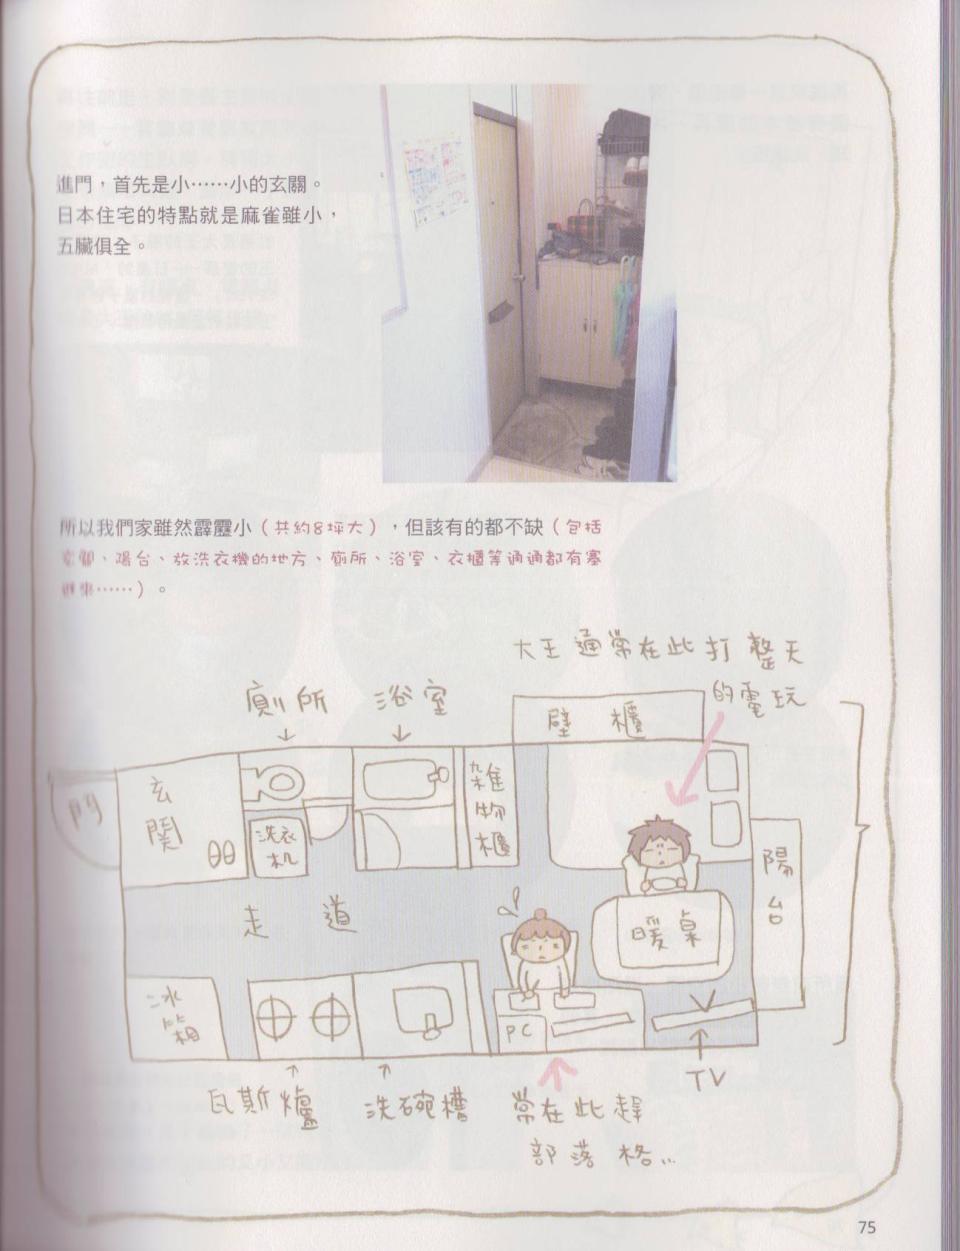 進門，首先是小……小的玄關。
日本住宅的特點就是麻雀雖小，
五臟俱全。
所以我們家雖然霹靂小（共約8坪大），但該有的都不缺（包括
玄關、陽台、放洗衣機的地方、廁所、浴室、衣櫃等通通都有塞
進來……）。
大王通常在此打整天
的電玩
廁所
浴室
壁櫃
門
玄關
洗衣
机
雜物櫃
陽台
走道
暖桌
冰箱
PC
TV
瓦斯爐
洗碗槽
常在此趕
部落格...
75